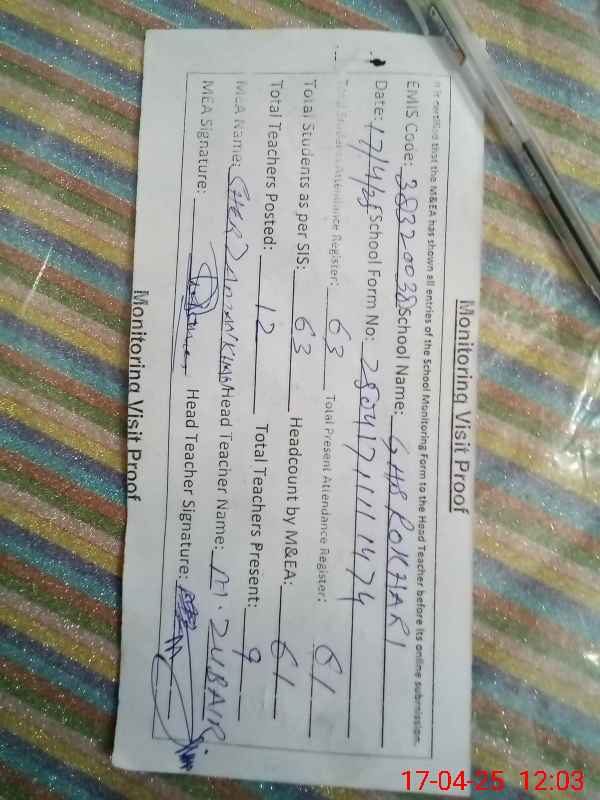 Monitoring Visit Proof
It is certified that the M&EA has shown all entries of the School Monitoring Form to the Head Teacher before its online submission.
EMIS Code: 38320038 School Name: GHS ROKHARI
Date: 17/4/25 School Form No: 2804171111474
Total Students Attendance Register: 63 Total Present Attendance Register: 61
Total Students as per SIS: 63 Headcount by M&EA: 61
Total Teachers Posted: 12 Total Teachers Present: 9
MEA Name: SHER Head Teacher Name: M. ZUBAIR.
MEA Signature: Head Teacher Signature:
Monitoring Visit Proof
17-04-25 12:03